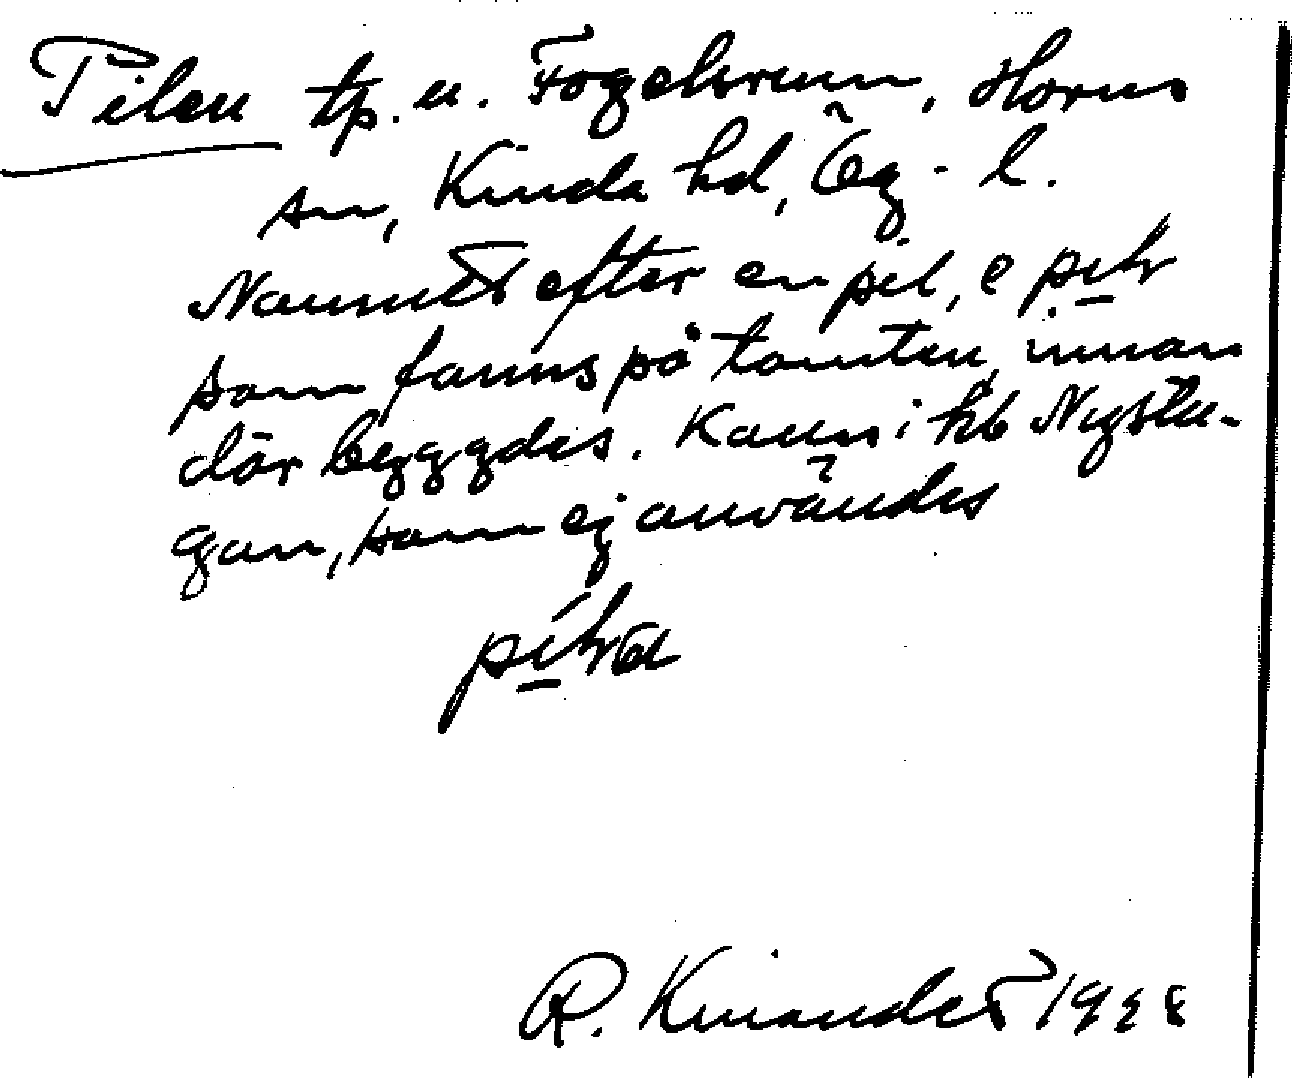 Pilen tp. u. Fogelsrum, Horns
sn, Kinda hd, Ög-l.
Namnet efter en pil, e pil,
som fanns på tomten, innan
där byggdes. Kann i kb Nystu-
gan, som ej användes
R. Kinander 1928